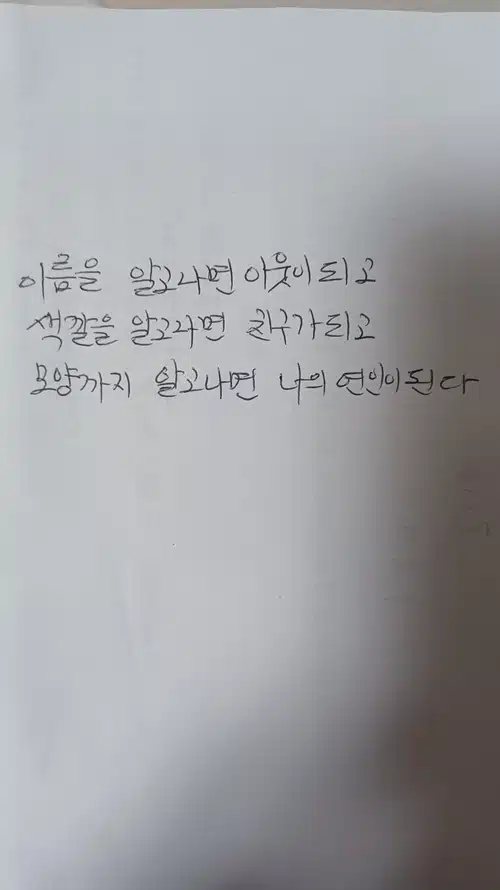 이름을 알고나면 이웃이 되고
색깔을 알고나면 친구가되고
모양까지 알고나면 나의 연인이된다